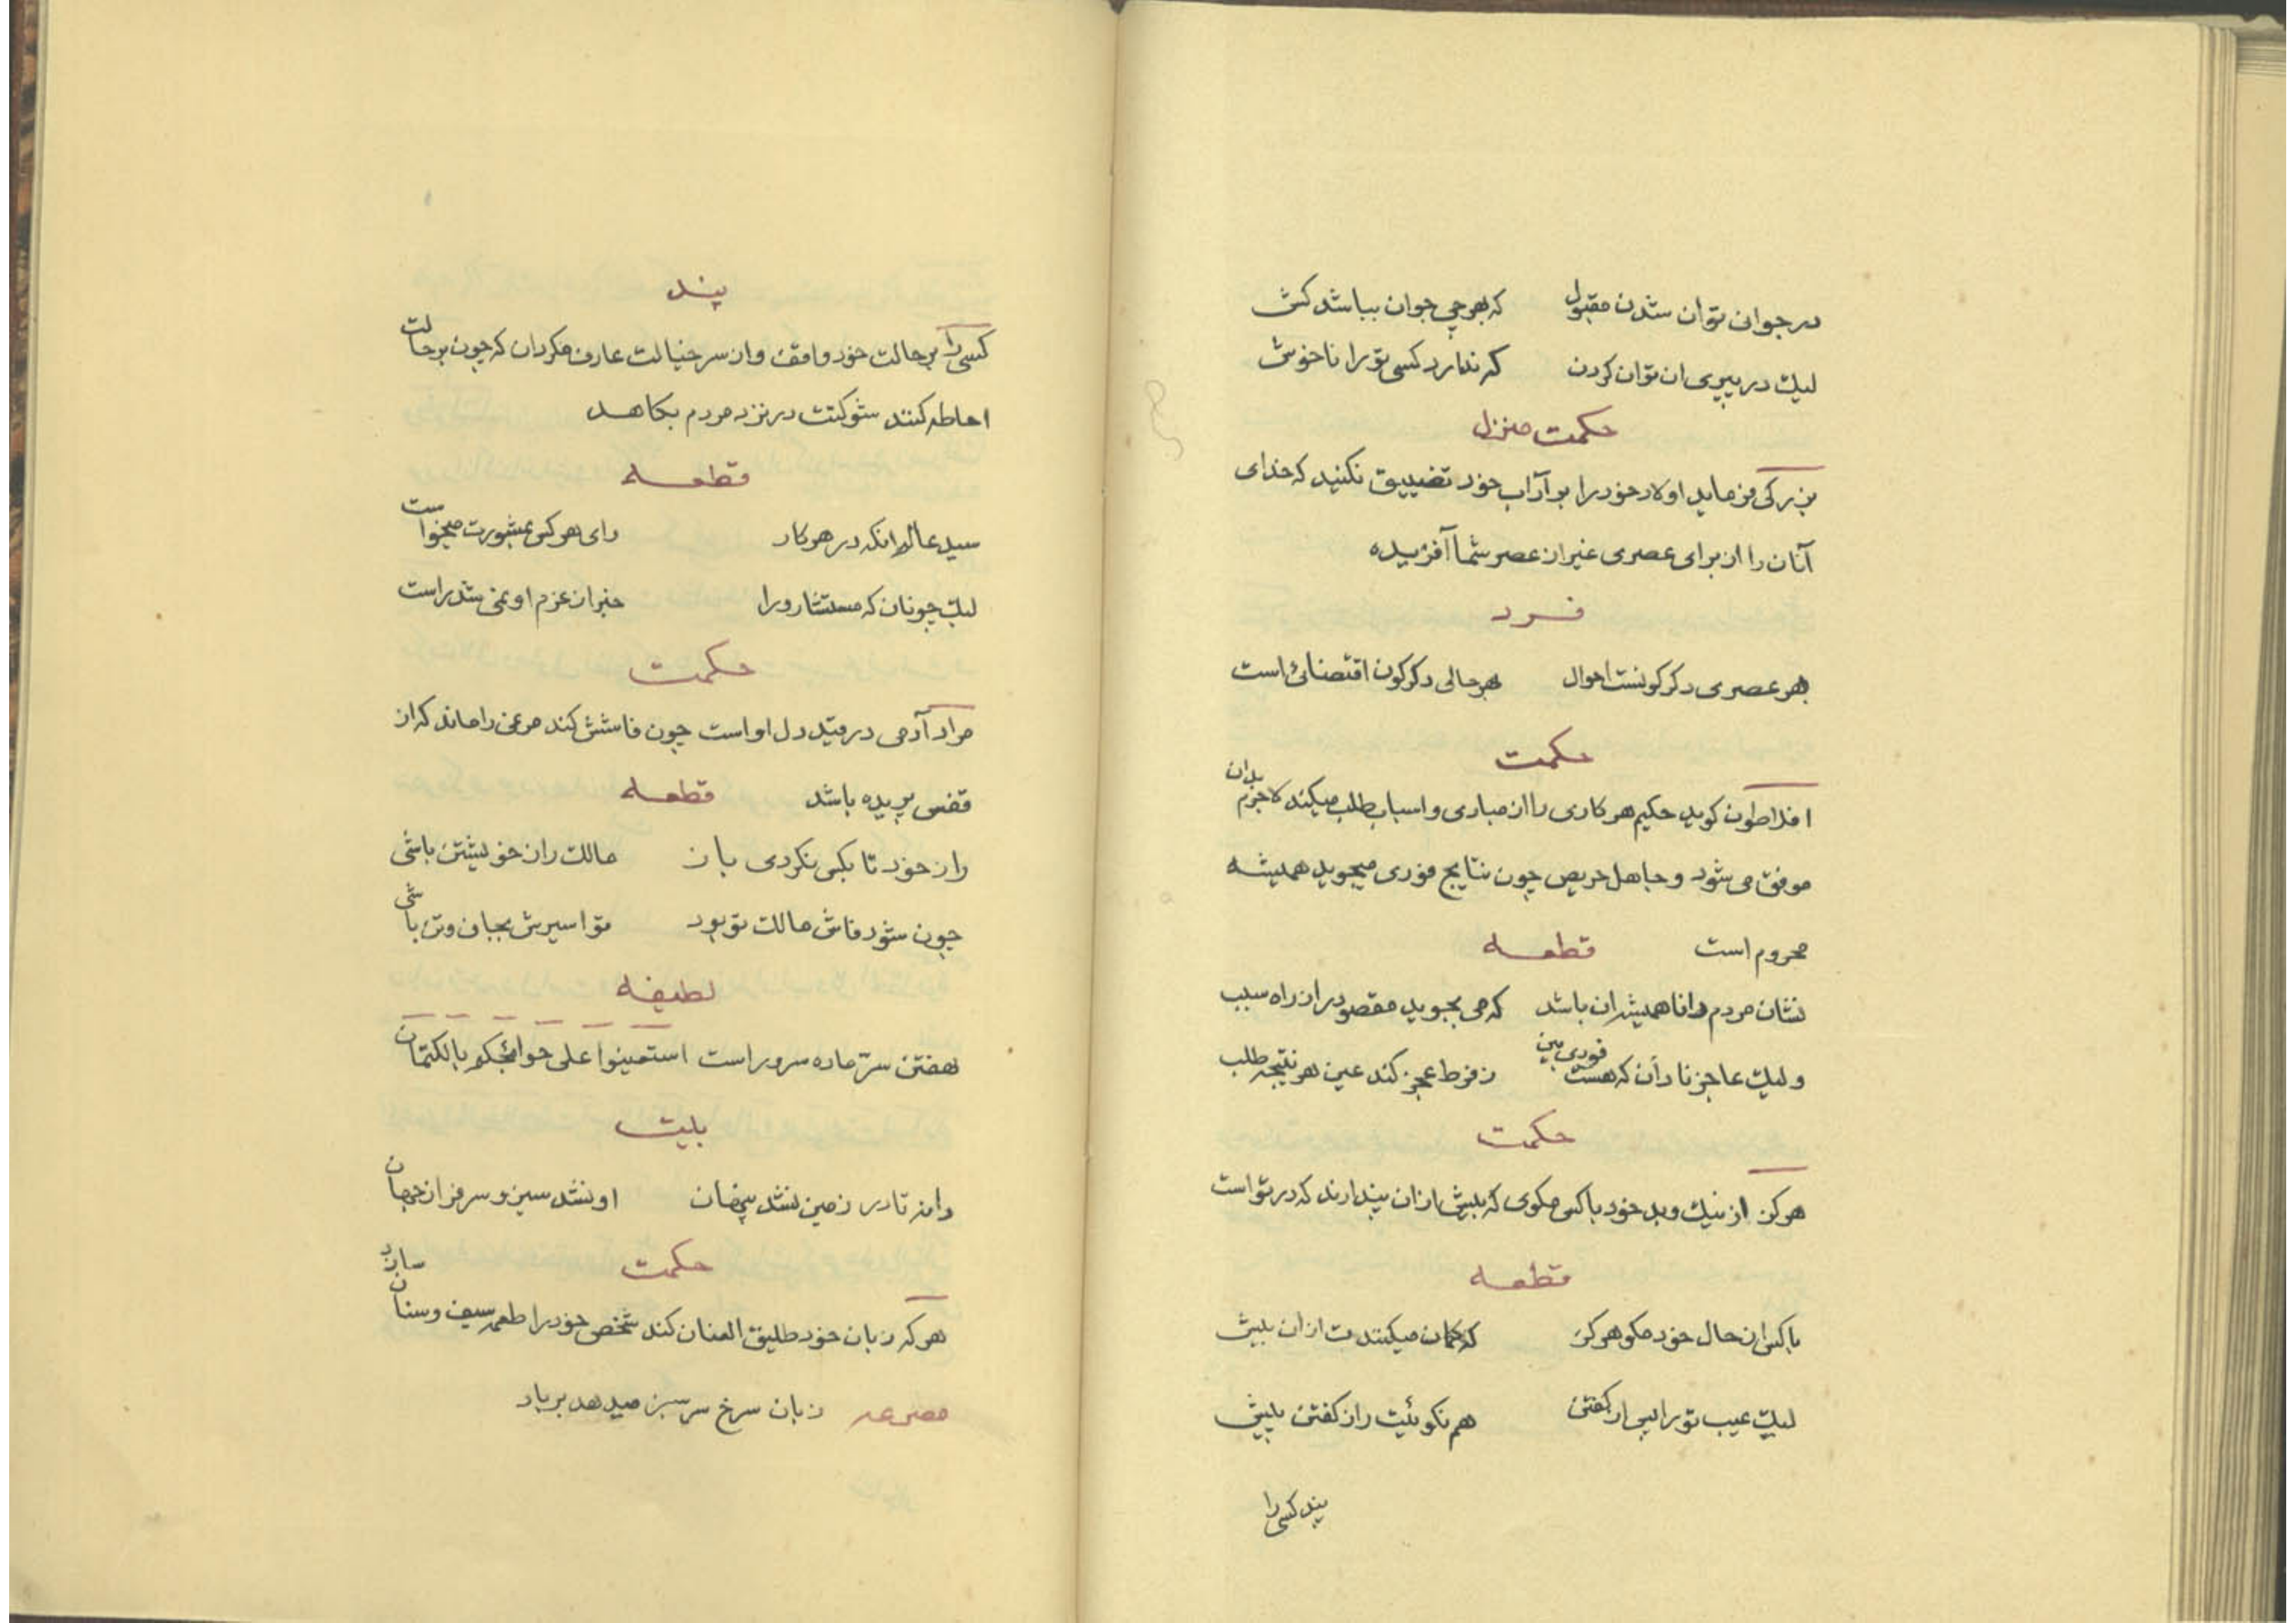 در جوان توان شدن مقبول که بهر چی جوان بباشد کش
لیك در پیری ان توان کردن که ندارد کسی تو را ناخوش
حکمت منزل
بزرکی فرماید اولاد خود را بر آداب خود تضییق نکنید که خدای
آنان را از برای عصری غیر از عصر شما آفریده
فرد
بهر عصری دکرکونست احوال بهر حالی دکرکون اقتضائی است
حکمت
افلاطون کوید حکیم هر کاری را از مبادی و اسباب طلب میکند لاجرم بدان
موفق می شود و جاهل حریص چون نتایج فوری میجوید همیشه
محروم است قطعه
نشان مردم دانا همیشه ان باشد که می بجوید مقصود از راه سبب
ولیك عاجز نادان که هست فوری بین ز فرط عجز کند عین هر نتیجه طلب
حکمت
هرکز از نیك و بد خود با کس مکوی که بیش از ان پندارند که در تو است
قطعه
با کس از حال خود مکو هرکز که کمان میکنندت از ان بیش
لیك عیب تو را پس از کفتن هم نکوئیت را ز کفتن پیش
پند کسی را
پند
کسی را بر حالت خود واقف و از سر خیالت عارف مکردان که چون بر حالت
احاطه کنند شوکتت در نزد مردم بکاهد
قطعه
سید عالم انکه در هر کار رای هر کس بمشورت میخواست
لیك چونان که مستشار ورا خبر از عزم او نمی شد راست
حکمت
مراد آدمی در قید دل او است چون فاشش کند مرغی را ماند که از
قفس پریده باشد قطعه
راز خود تا بکس نکردی باز مالك راز خویشتن باشی
چون شود فاش مالك تو بود تو اسیرش بجان و تن باشی
لطیفه
نهفتن سرّ ماده سرور است استعینوا علی حوائجکم بالکتمان
بیت
دانه تا در زمین نشد پنهان او نشد سبز و سرفراز جهان
حکمت
هر که زبان خود طلیق العنان کند شخص خود را طعمه سیف و سنان سازد
مصرعه زبان سرخ سر سبز میدهد بر باد